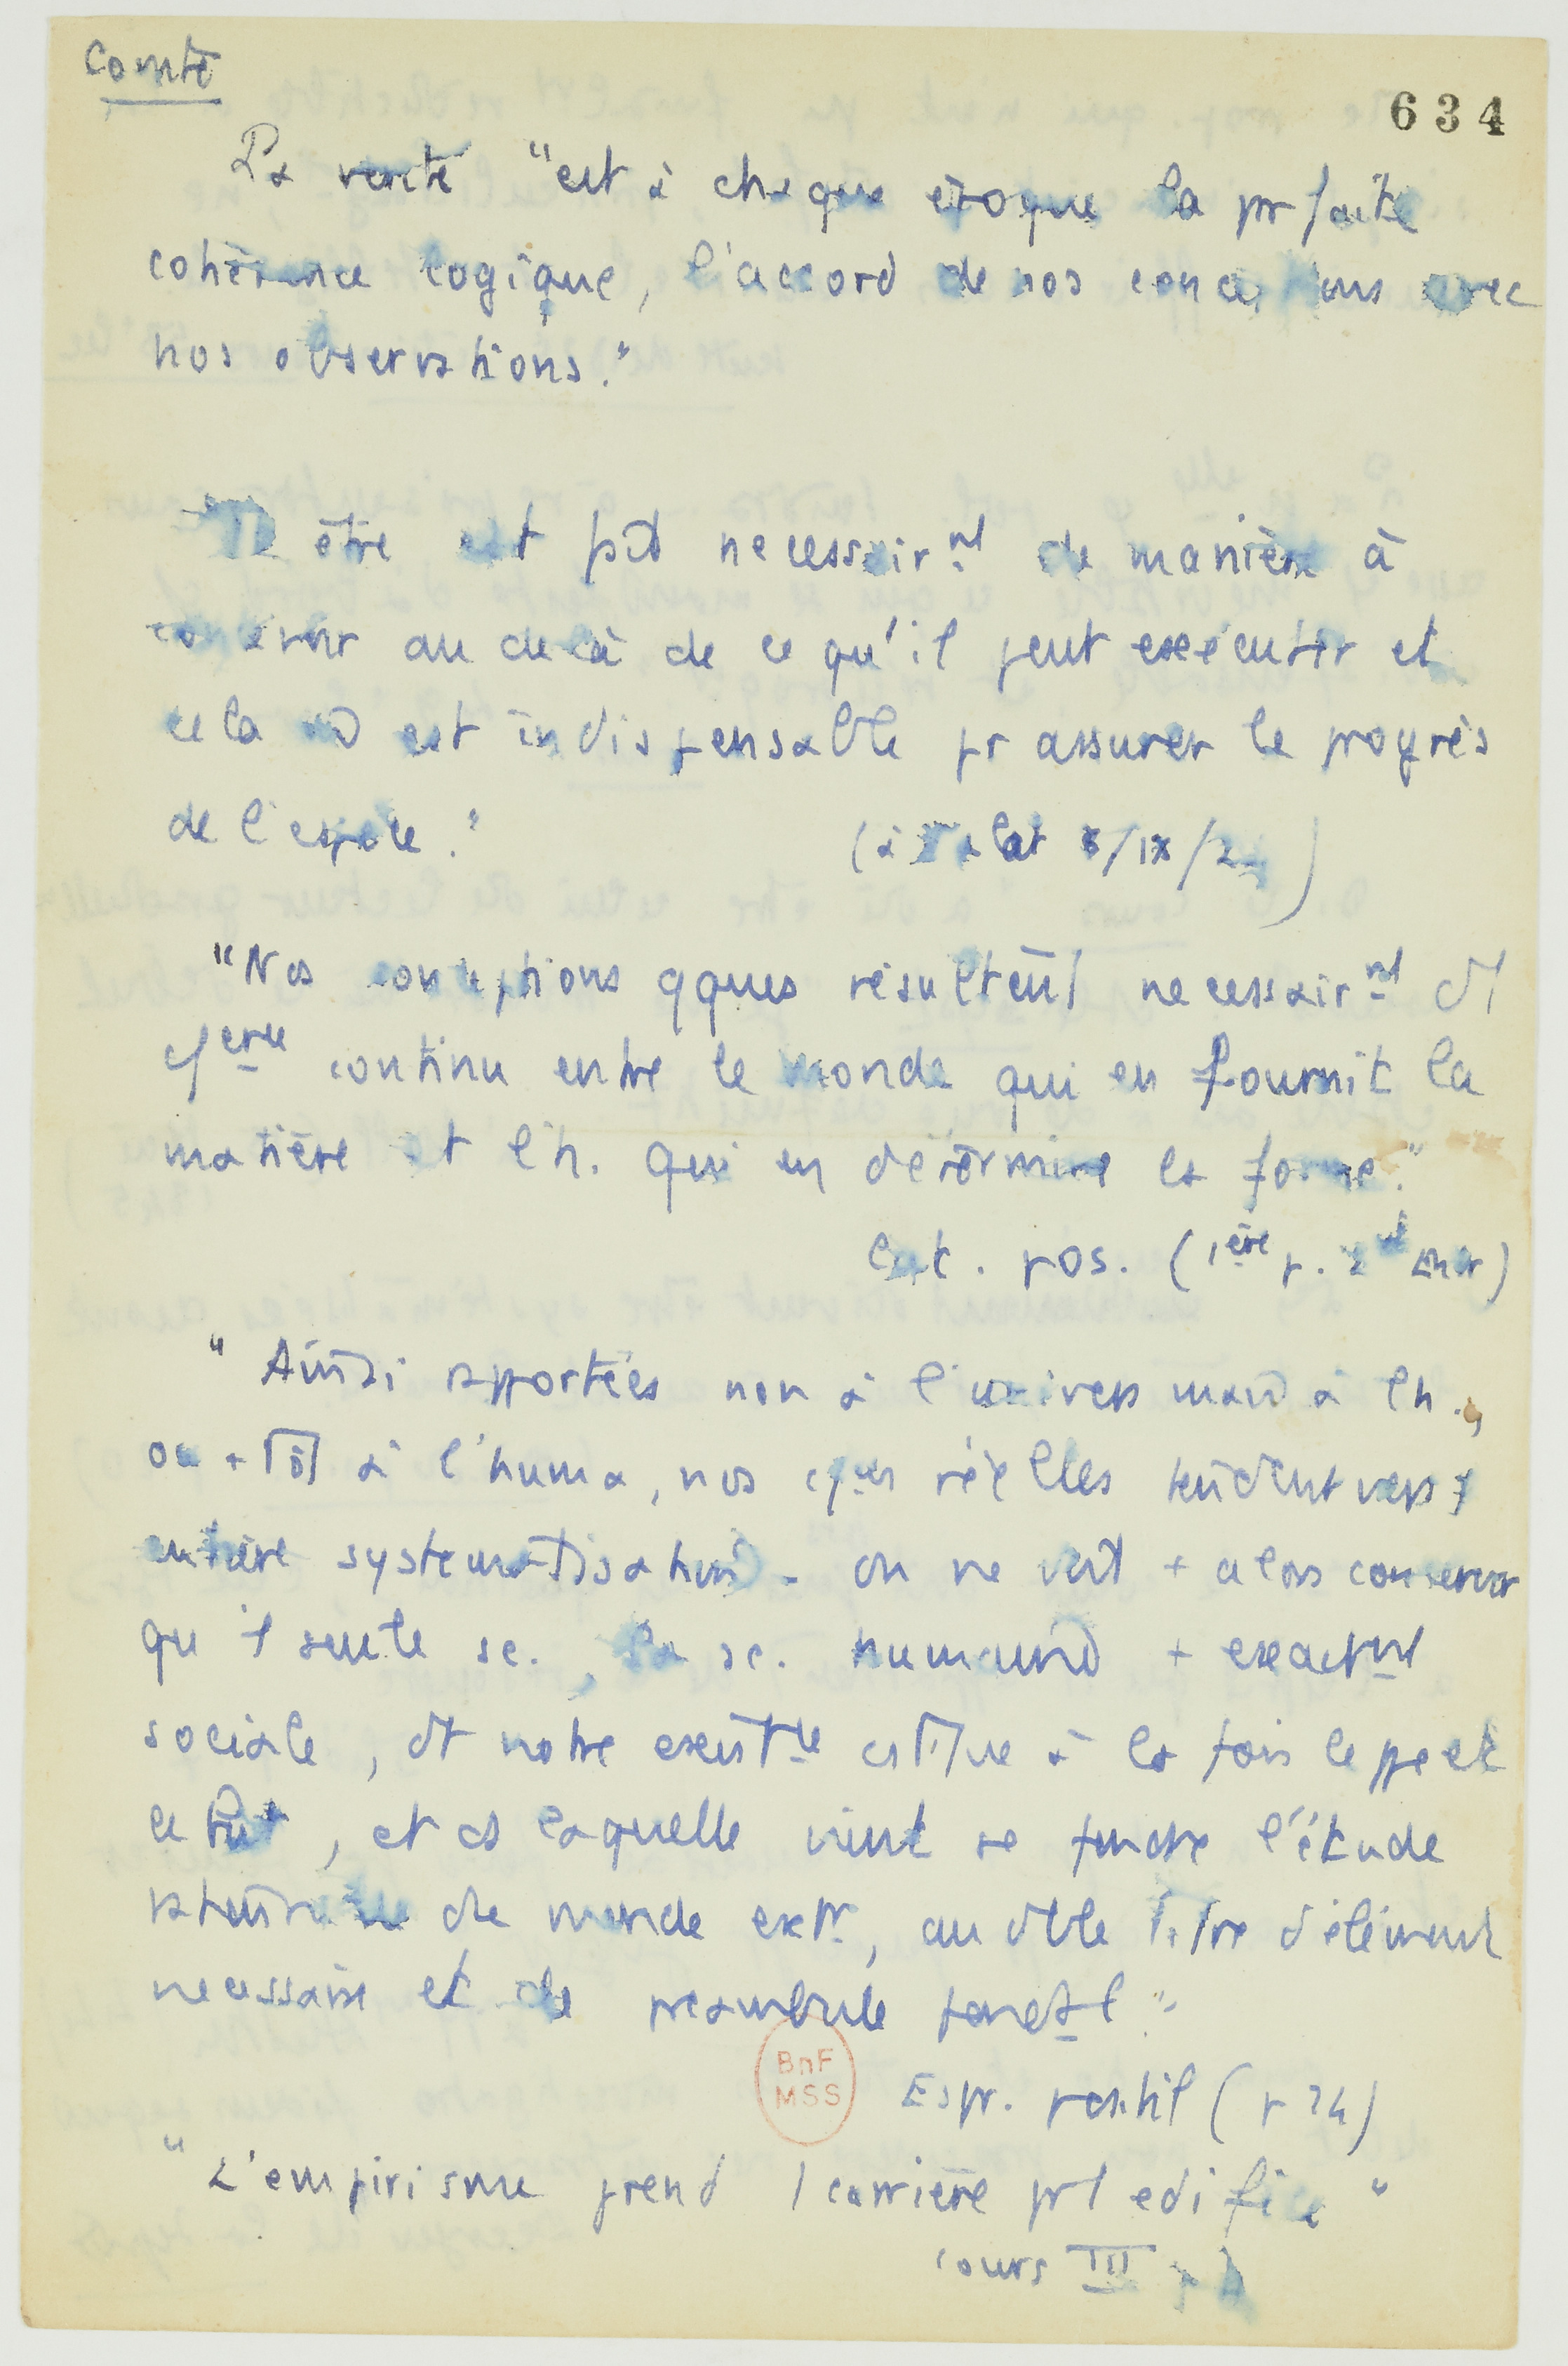 Comte
634
La verité "est à chaque époque la prfaite
cohérence logique, l'accord de nos conceptions avec
nos observations."
être est fait necessairnt de manière à
concevoir au delà de ce qu'il peut exécuter et
cela est indispensable pr assurer le progrès
de l'espèce."
(à Valat 8/IX/24)
"Nos conceptions qques resultent necessairnt
continu entre le monde qui en fournit la
matière et l'h. qui en détermine la forme."
Cat. pos. (1ère p. 2nd Entr)
"Ainsi rapportées non à l'univers mais à l'h.,
ou + tôt à l'huma, nos réelles tendent vers 1
entière systematisation. on ne doit + alors concevoir
qu'1 seule sc., la sc. humaine + exactmt
sociale, dt notre exist ce à la fois le ppe et
le but, et ds laquelle vient se fondre l'étude
rationnelle du monde extr, au dble titre d'élément
necessaire et de preambule fondal"
BnF
MSS
Espr. positif (p 24)
"L'empirisme prend 1 carrière pr 1 edifice"
Cours III